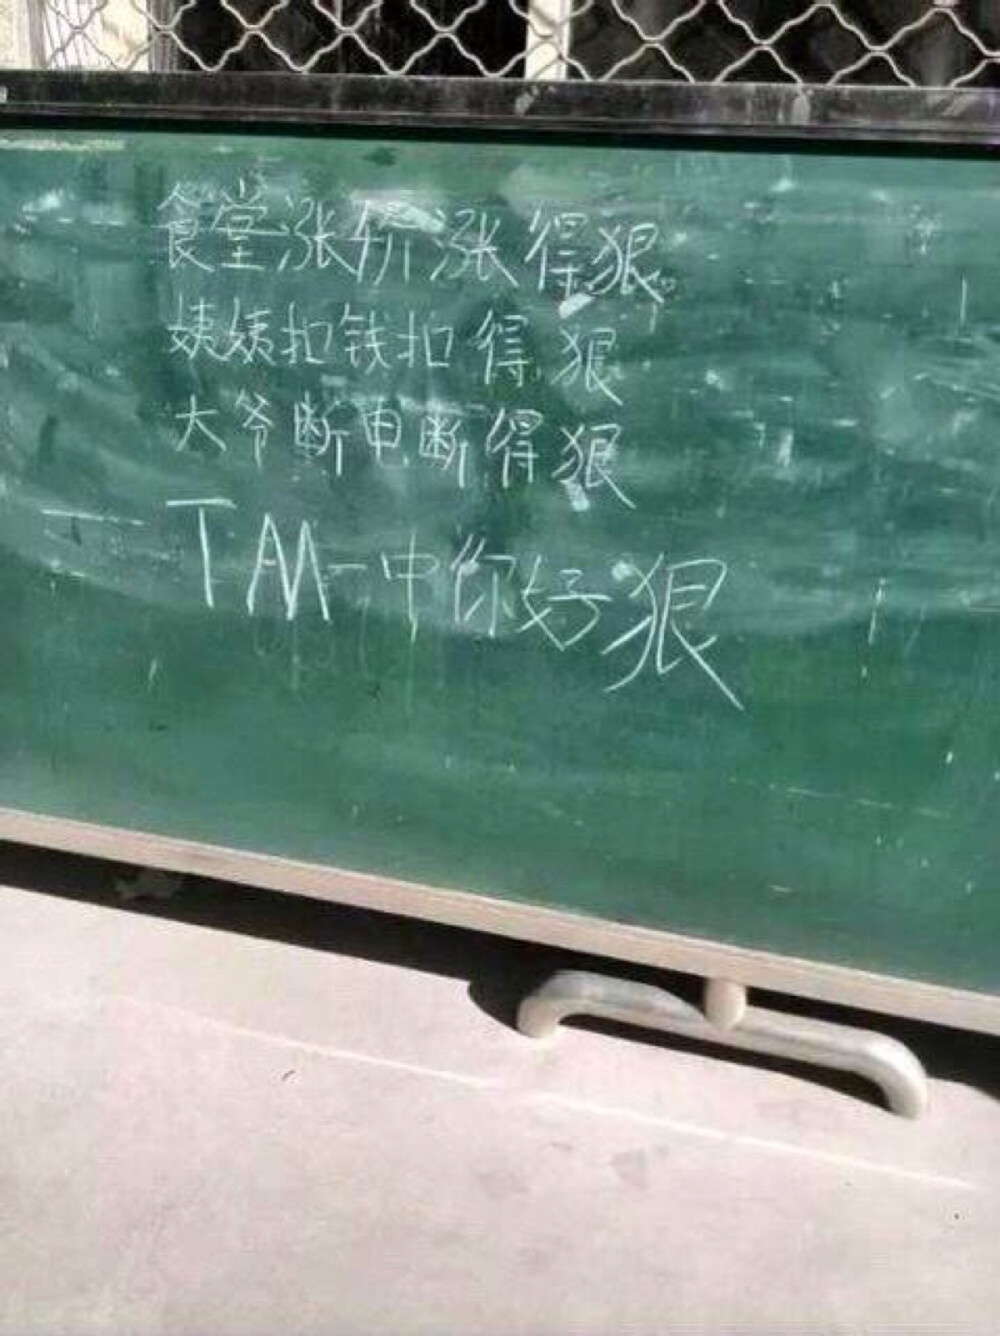 食堂涨价涨得狠。
姨姨扣铁扣得狠
大爷断电断得狠
TM一中你好狠